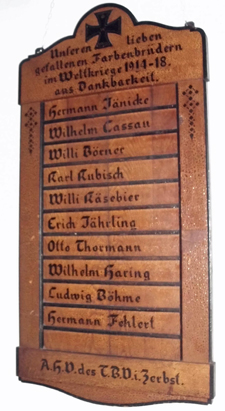 Unseren lieben
gefallenen Farbenbrüdern
im Weltkriege 1914-18.
aus Dankbarkeit.
Hermann Jänicke
Wilhelm Cassau
Willi Börner
Karl Kubisch
Willi Käsebier
Erich Jährling
Otto Thormann
Wilhelm Haring
Ludwig Böhme
Hermann Fehlert
A.H.V. des T.B.V. i. Zerbst.